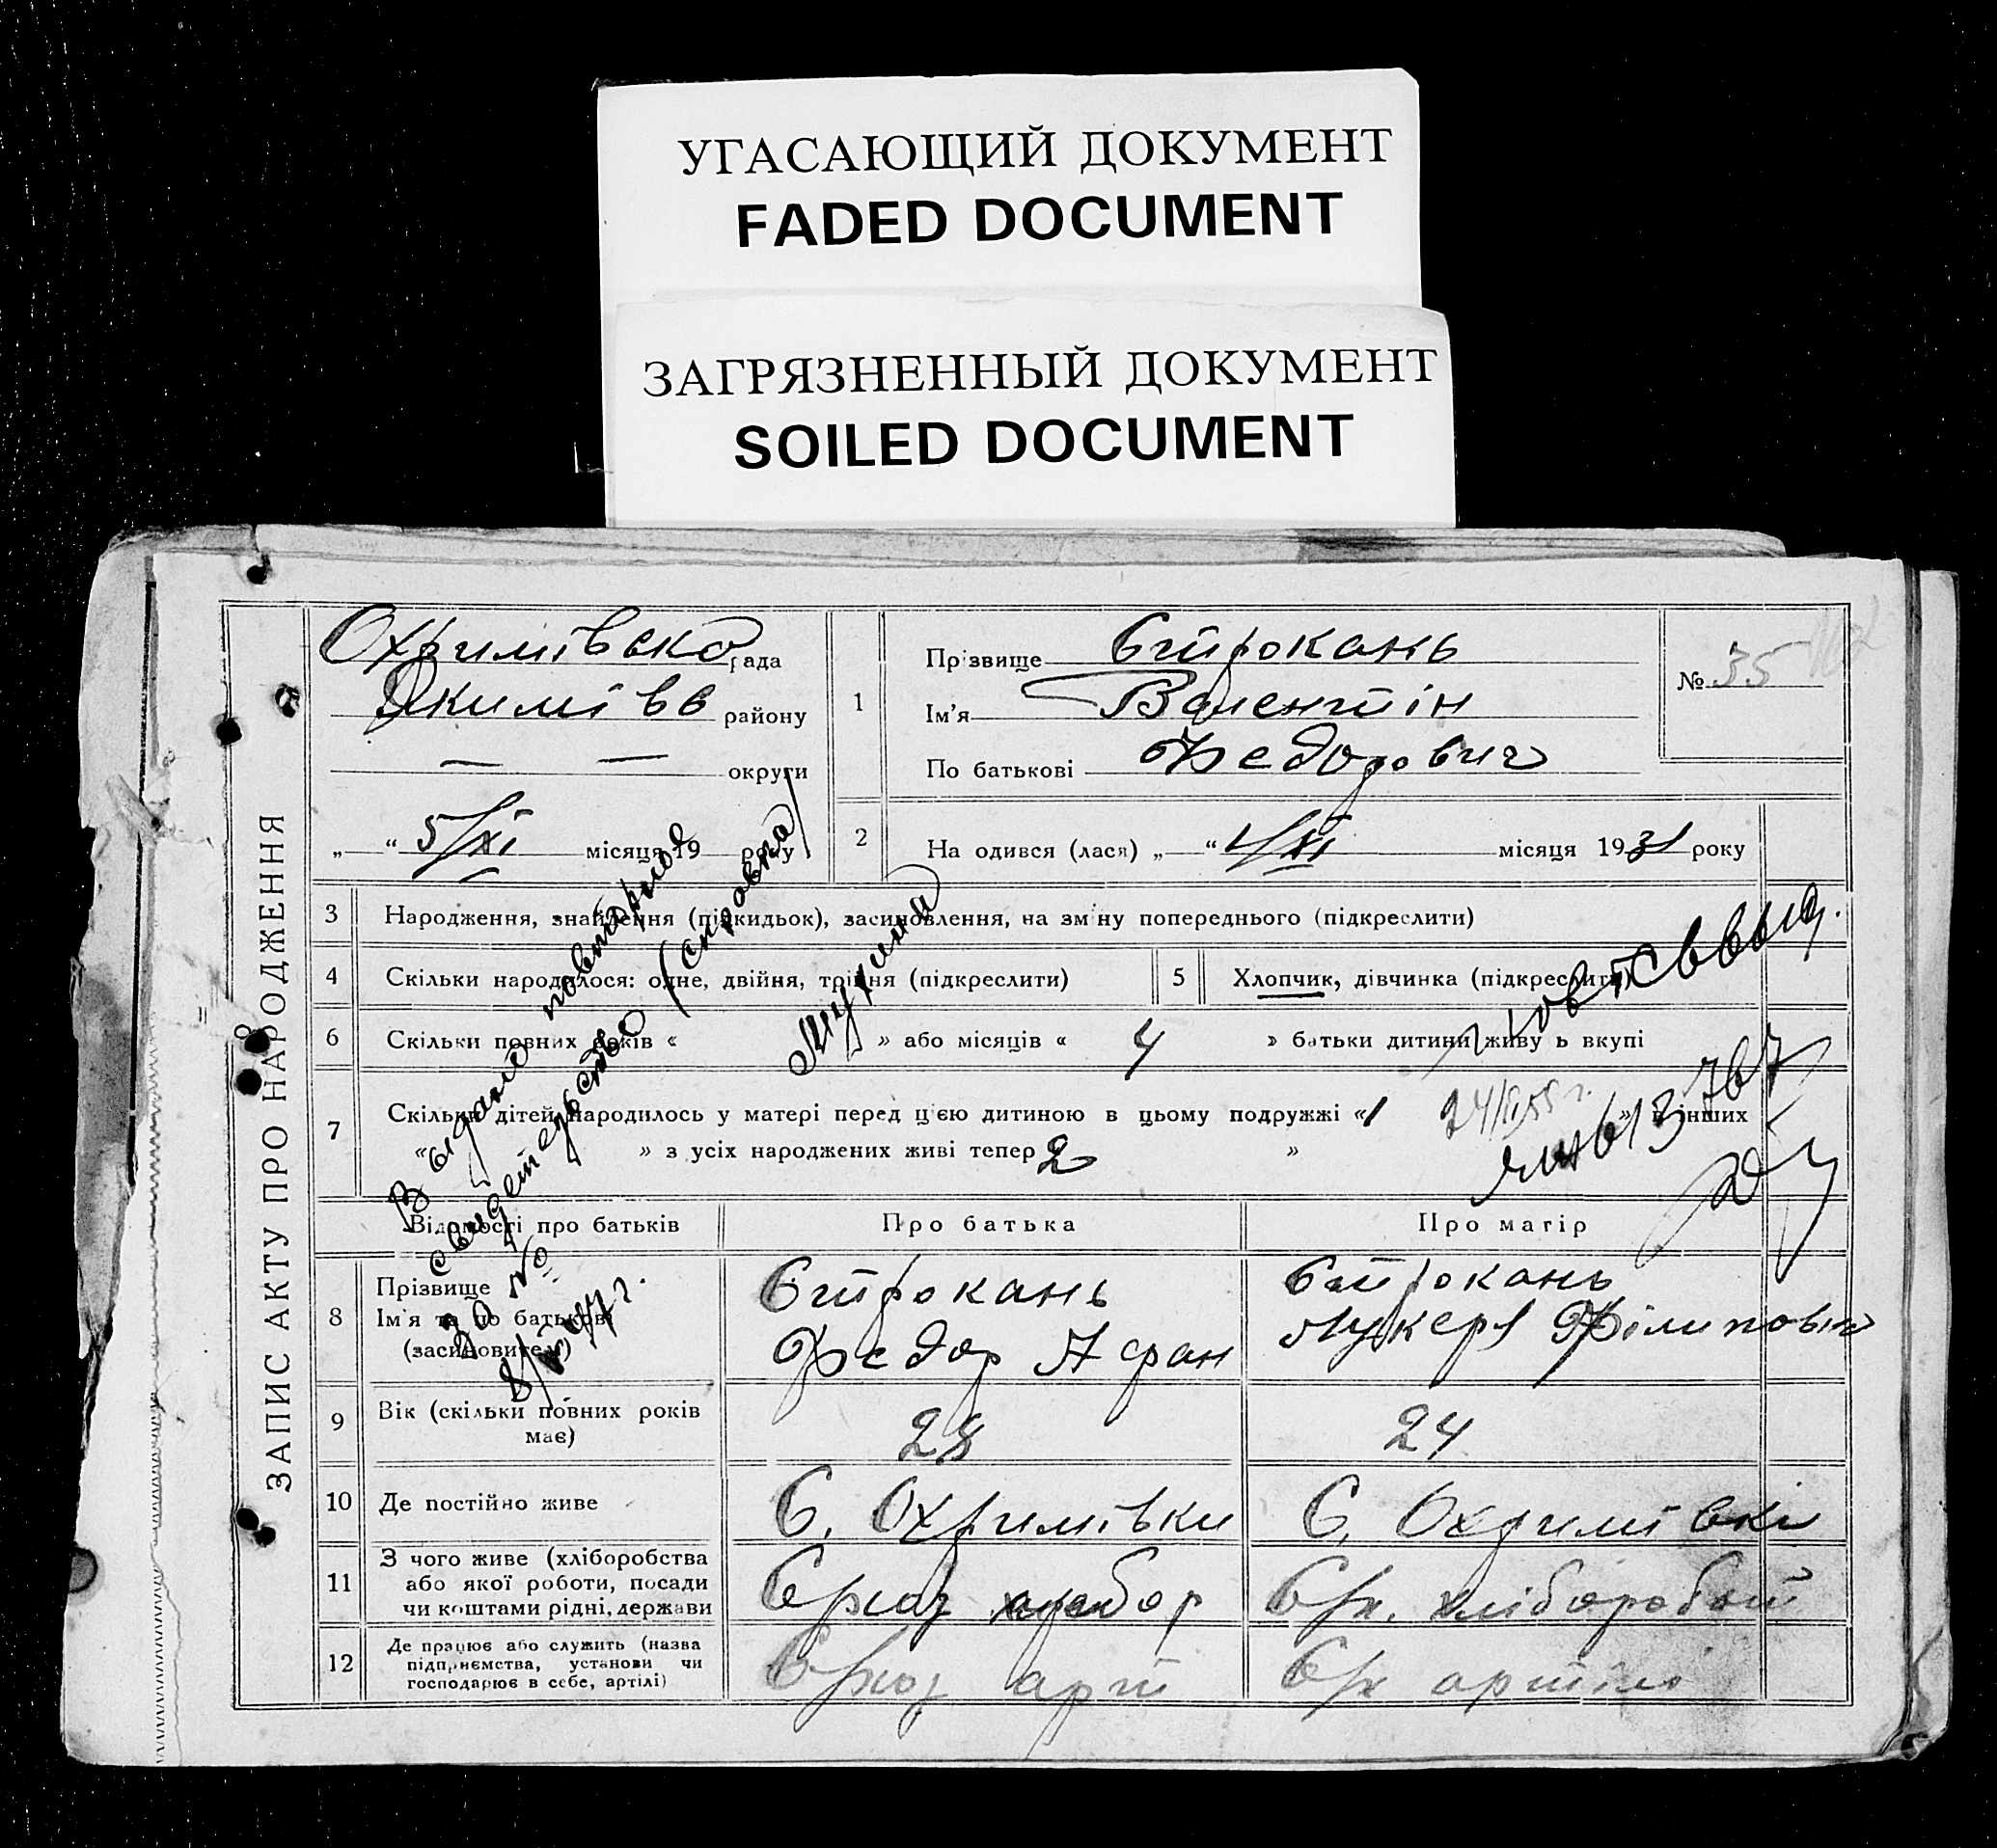 УГАСАЮЩИЙ ДОКУМЕНТ
FADED DOCUMENT
ЗАГРЯЗНЕННЫЙ ДОКУМЕНТ
SOILED DOCUMENT
ЗАПИС АКТУ ПРО НАРОДЖЕННЯ
Охримівска рада
Якимівв району
— — округи
„ “ 5/XI місяця 19 року
1
Прізвище Строкань
Ім'я Валентін
По батькові Федорович
№ 35
2
На одився (лася) „ “ 1/XI місяця 1931 року
3 Народження, знайдення (підкидьок), засиновлення, на зміну попереднього (підкреслити)
4 Скільки народилося: одне, двійня, трійня (підкреслити)
5 Хлопчик, дівчинка (підкреслити)
6 Скільки повних років « » або місяців « 4 » батьки дитини живу ь вкупі
7 Скільки дітей народилось у матері перед цією дитиною в цьому подружжі « 1 » в інших
« » з усіх народжених живі тепер 2 »
Выдано повторное
свидетельство (справка)
за №
24/II 55 г.
613767
Відомості про батьків
Про батька
Про матір
8 Прізвище
Ім'я та по батькові
(засиновителі)
Строкань
Федор Афан
Строкань
Лукеря Філипович
9 Вік (скільки повних років має)
24
10 Де постійно живе
С. Охримівки
С. Охримівкі
11 З чого живе (хліборобства
або якої роботи, посади
чи коштами рідні, держави
хліборобой
12 Де працює або служить (назва
підприємства, установи чи
господарює в себе, артілі)
арт
артілі